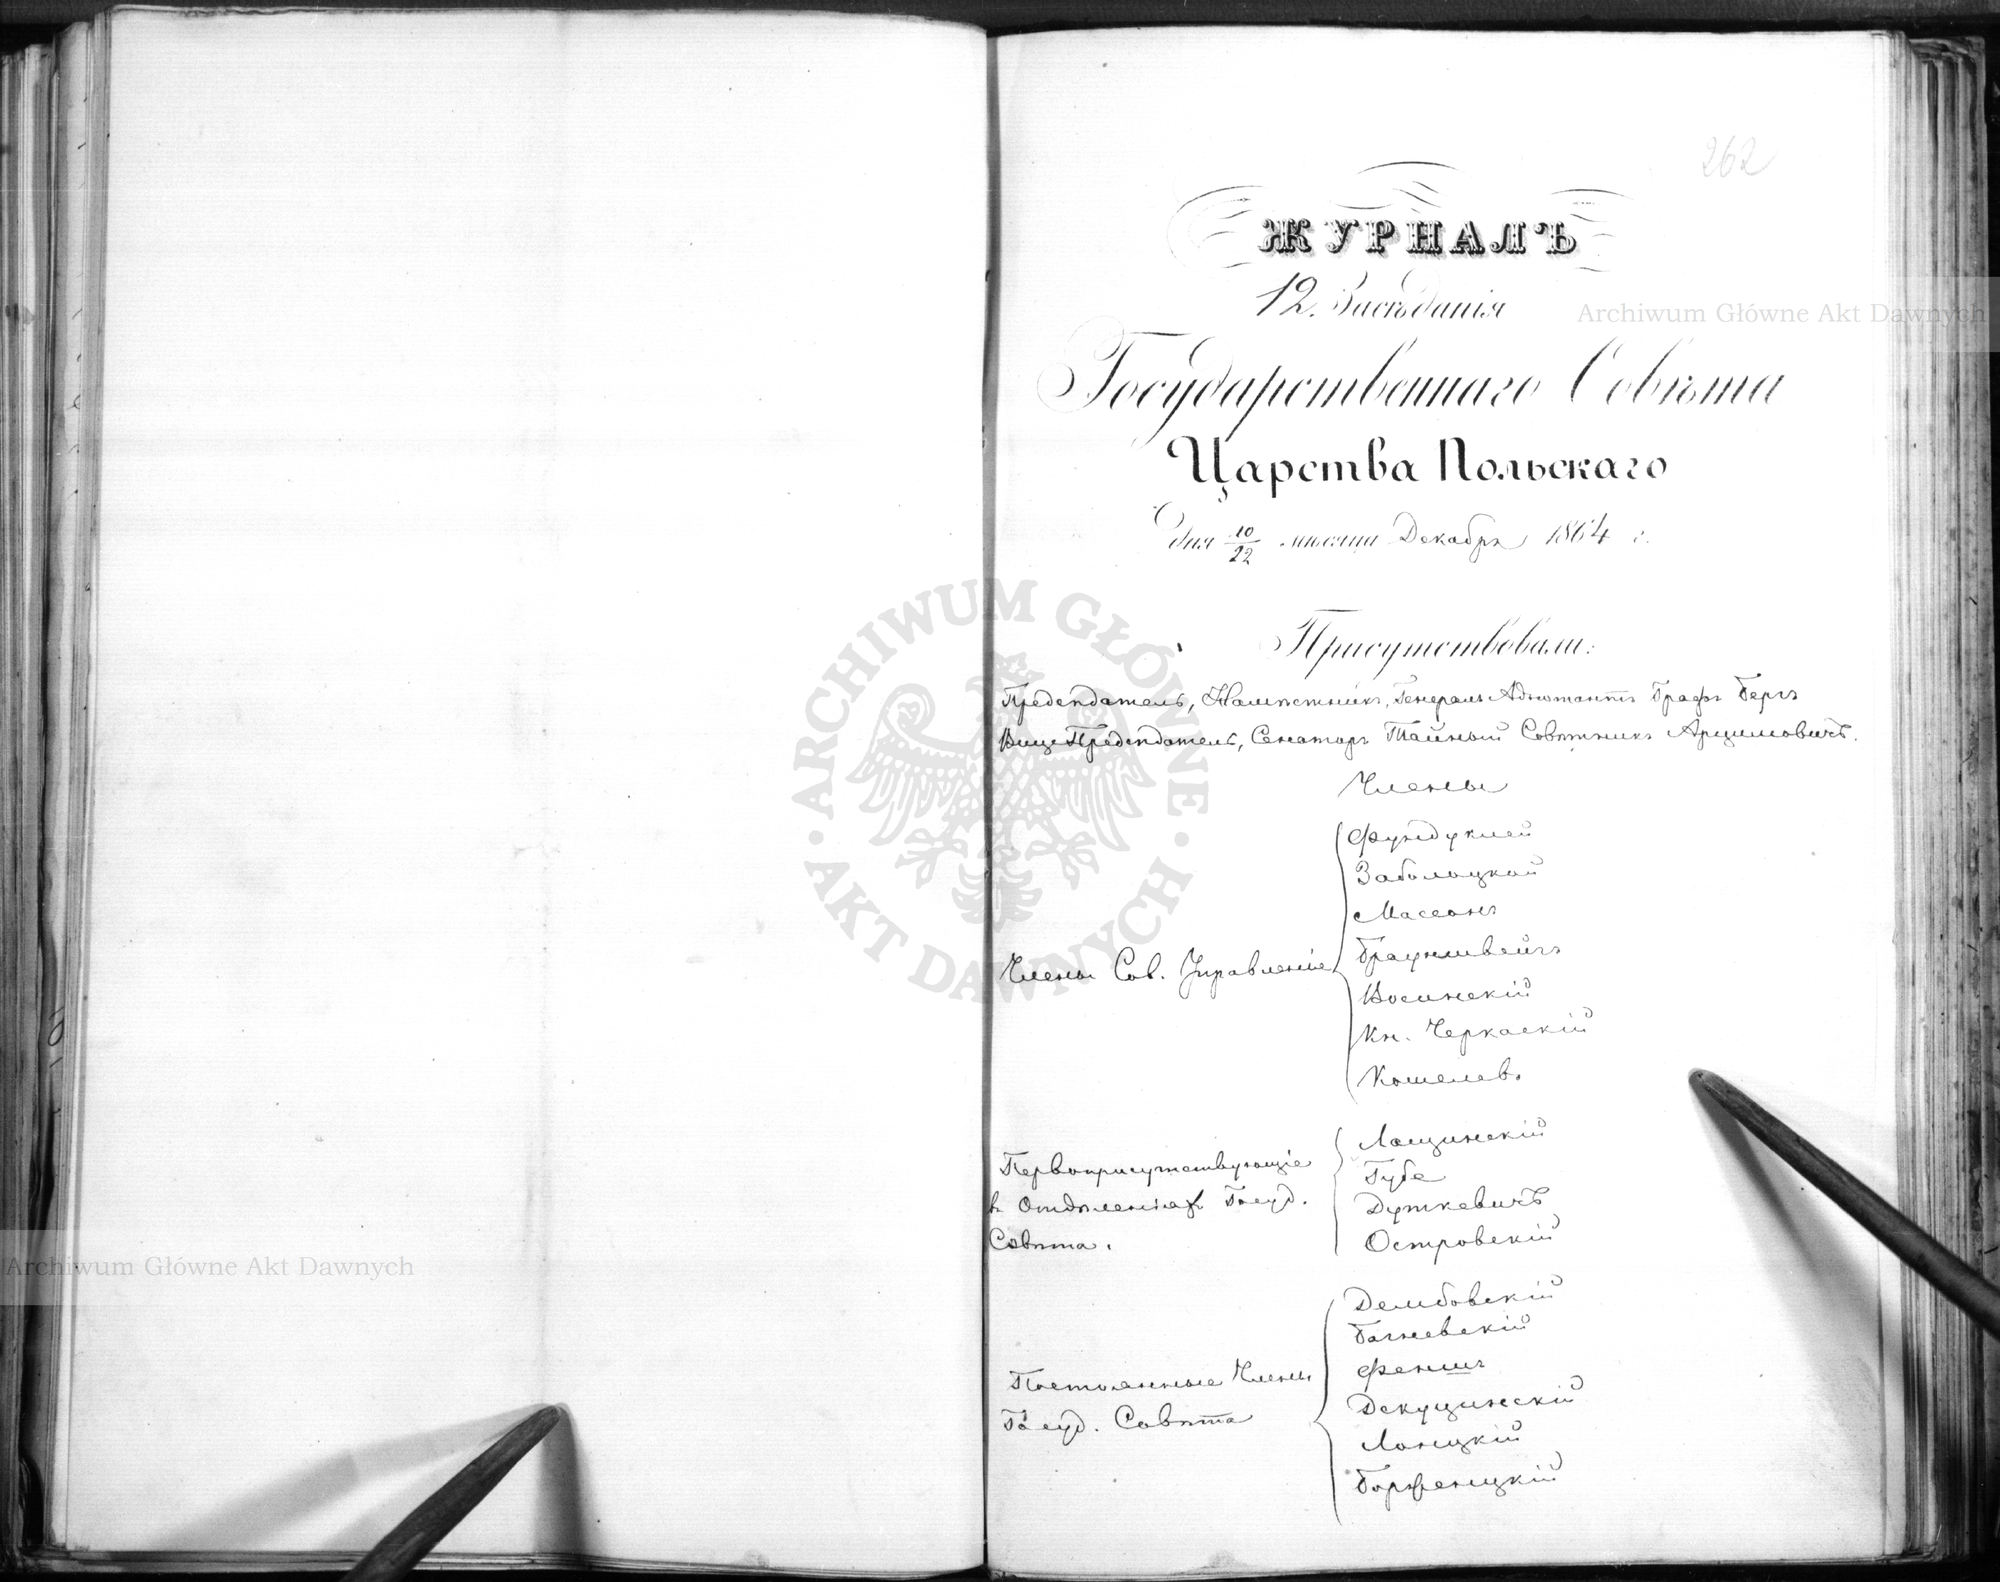 262
ЖУРНАЛЪ
12. Засѣданія
Государственнаго Совѣта
Царства Польскаго
дня 10/22 мѣсяца Декабря 1864 г.
Присутствовали:
Предсѣдатель, Намѣстникъ, Генералъ Адъютантъ Графъ Бергъ
Вице Предсѣдатель, Сенаторъ Тайный Совѣтникъ Арцимовичъ.
Члены
Члены Сов. Управленія
Фундуклей
Заболоцкой
Массонъ
Брауншвейгъ
Восинскій
Кн. Черкаскій
Кошелевъ
Первоприсутствующіе
въ Отдѣленіяхъ Госуд.
Совѣта.
Лащинскій
Губе
Дуткевичъ
Островскій
Постоянные Члены
Госуд. Совѣта
Дембовскій
Багневскій
Феншъ
Декуцинскій
Лонцкій
Archiwum Główne Akt Dawnych
Archiwum Główne Akt Dawnych
ARCHIWUM GŁÓWNE · AKT DAWNYCH ·